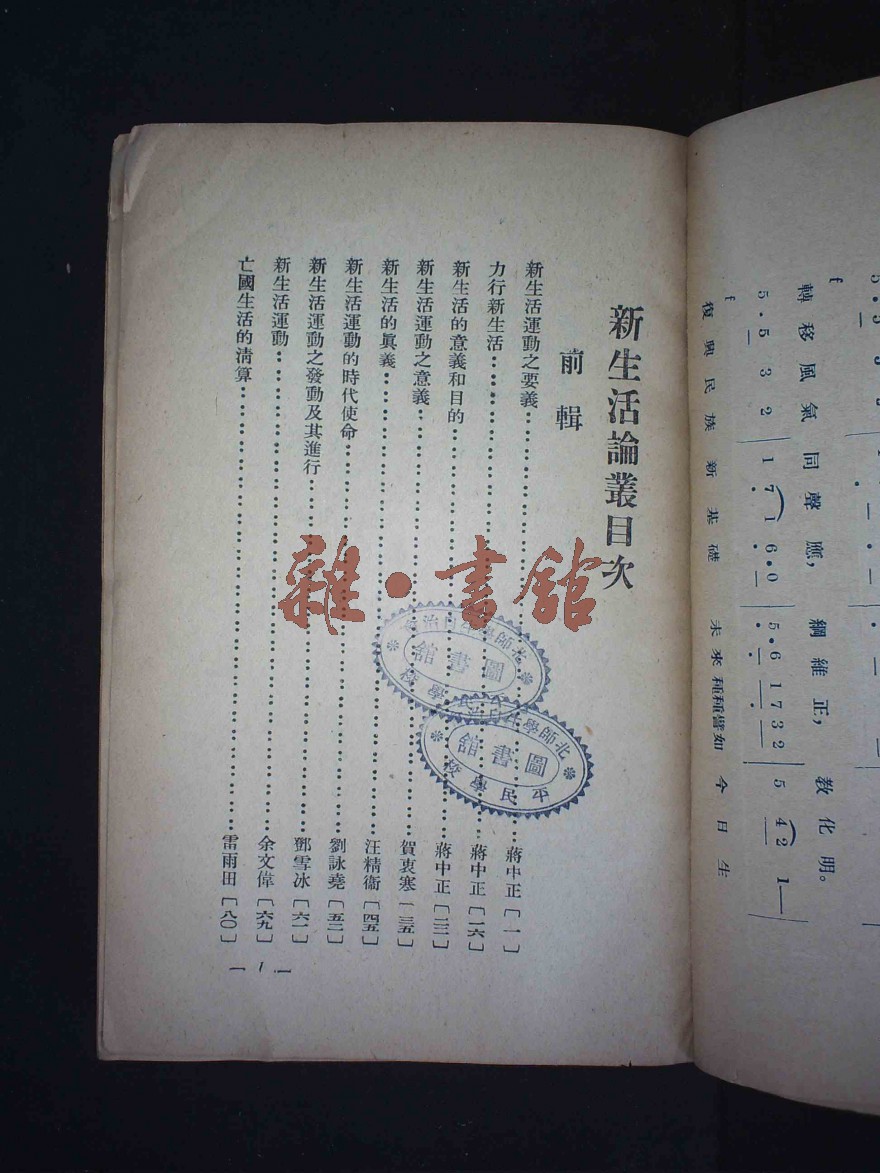 新生活論叢目次
前輯
新生活運動之要義……蔣中正［一］
力行新生活……蔣中正［一六］
新生活的意義和目的……蔣中正［二二］
新生活運動之意義……賀衷寒［三五］
新生活的眞義……汪精衞［四五］
新生活運動的時代使命……劉詠堯［五二］
新生活運動之發動及其進行……鄧雪冰［六一］
新生活運動……余文偉［六九］
亡國生活的淸算……雷雨田［八〇］
— 1 —
雜·書館
圖書館
平民學校
北師學生自治會
圖書館
平民學校
轉移風氣同聲應，綱維正，教化明。
f
5·5 3 2 1 7 1 6·0 5·6 1 7 3 2 5 4 2 1 —
f
復興民族新基礎 未來種種譬如今日生